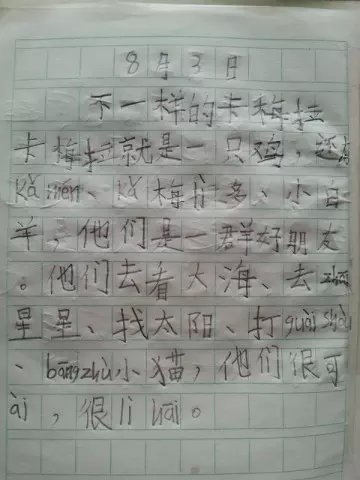 8月3日
不一样的卡梅拉
卡梅拉就是一只鸡，还
kǎ mén、kǎ梅lì多、小白
羊，他们是一群好朋友
。他们去看大海、去zhāi
星星、找太阳、打guài shòu
、bāngzhù小猫，他们很可
ài，很lì hāi。